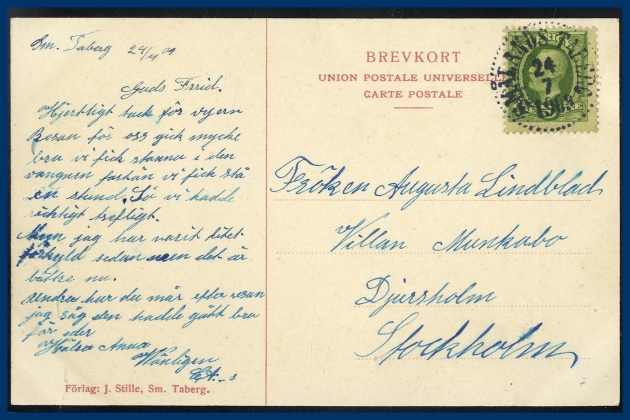 Sm. Taberg 24/7 09
Guds Frid.
Hjertligt tack för vyern
Resan för oss gick mycke
bra vi fick stanna i den
vangnen fastän vi fick stå
en stund. Så vi hadde
richtigt trefligt.
Men jag har varit litet
förkyld sedan men det är
bättre nu.
undra hur du mår efter resan
jag såg den hadde gått bra
för eder
Hälsa Anna
Vänligen
Förlag: J. Stille, Sm. Taberg.
BREVKORT
UNION POSTALE UNIVERSELLE
CARTE POSTALE
24
7
Fröken Augusta Lindblad
Villan Munkabo
Djursholm
Stockholm